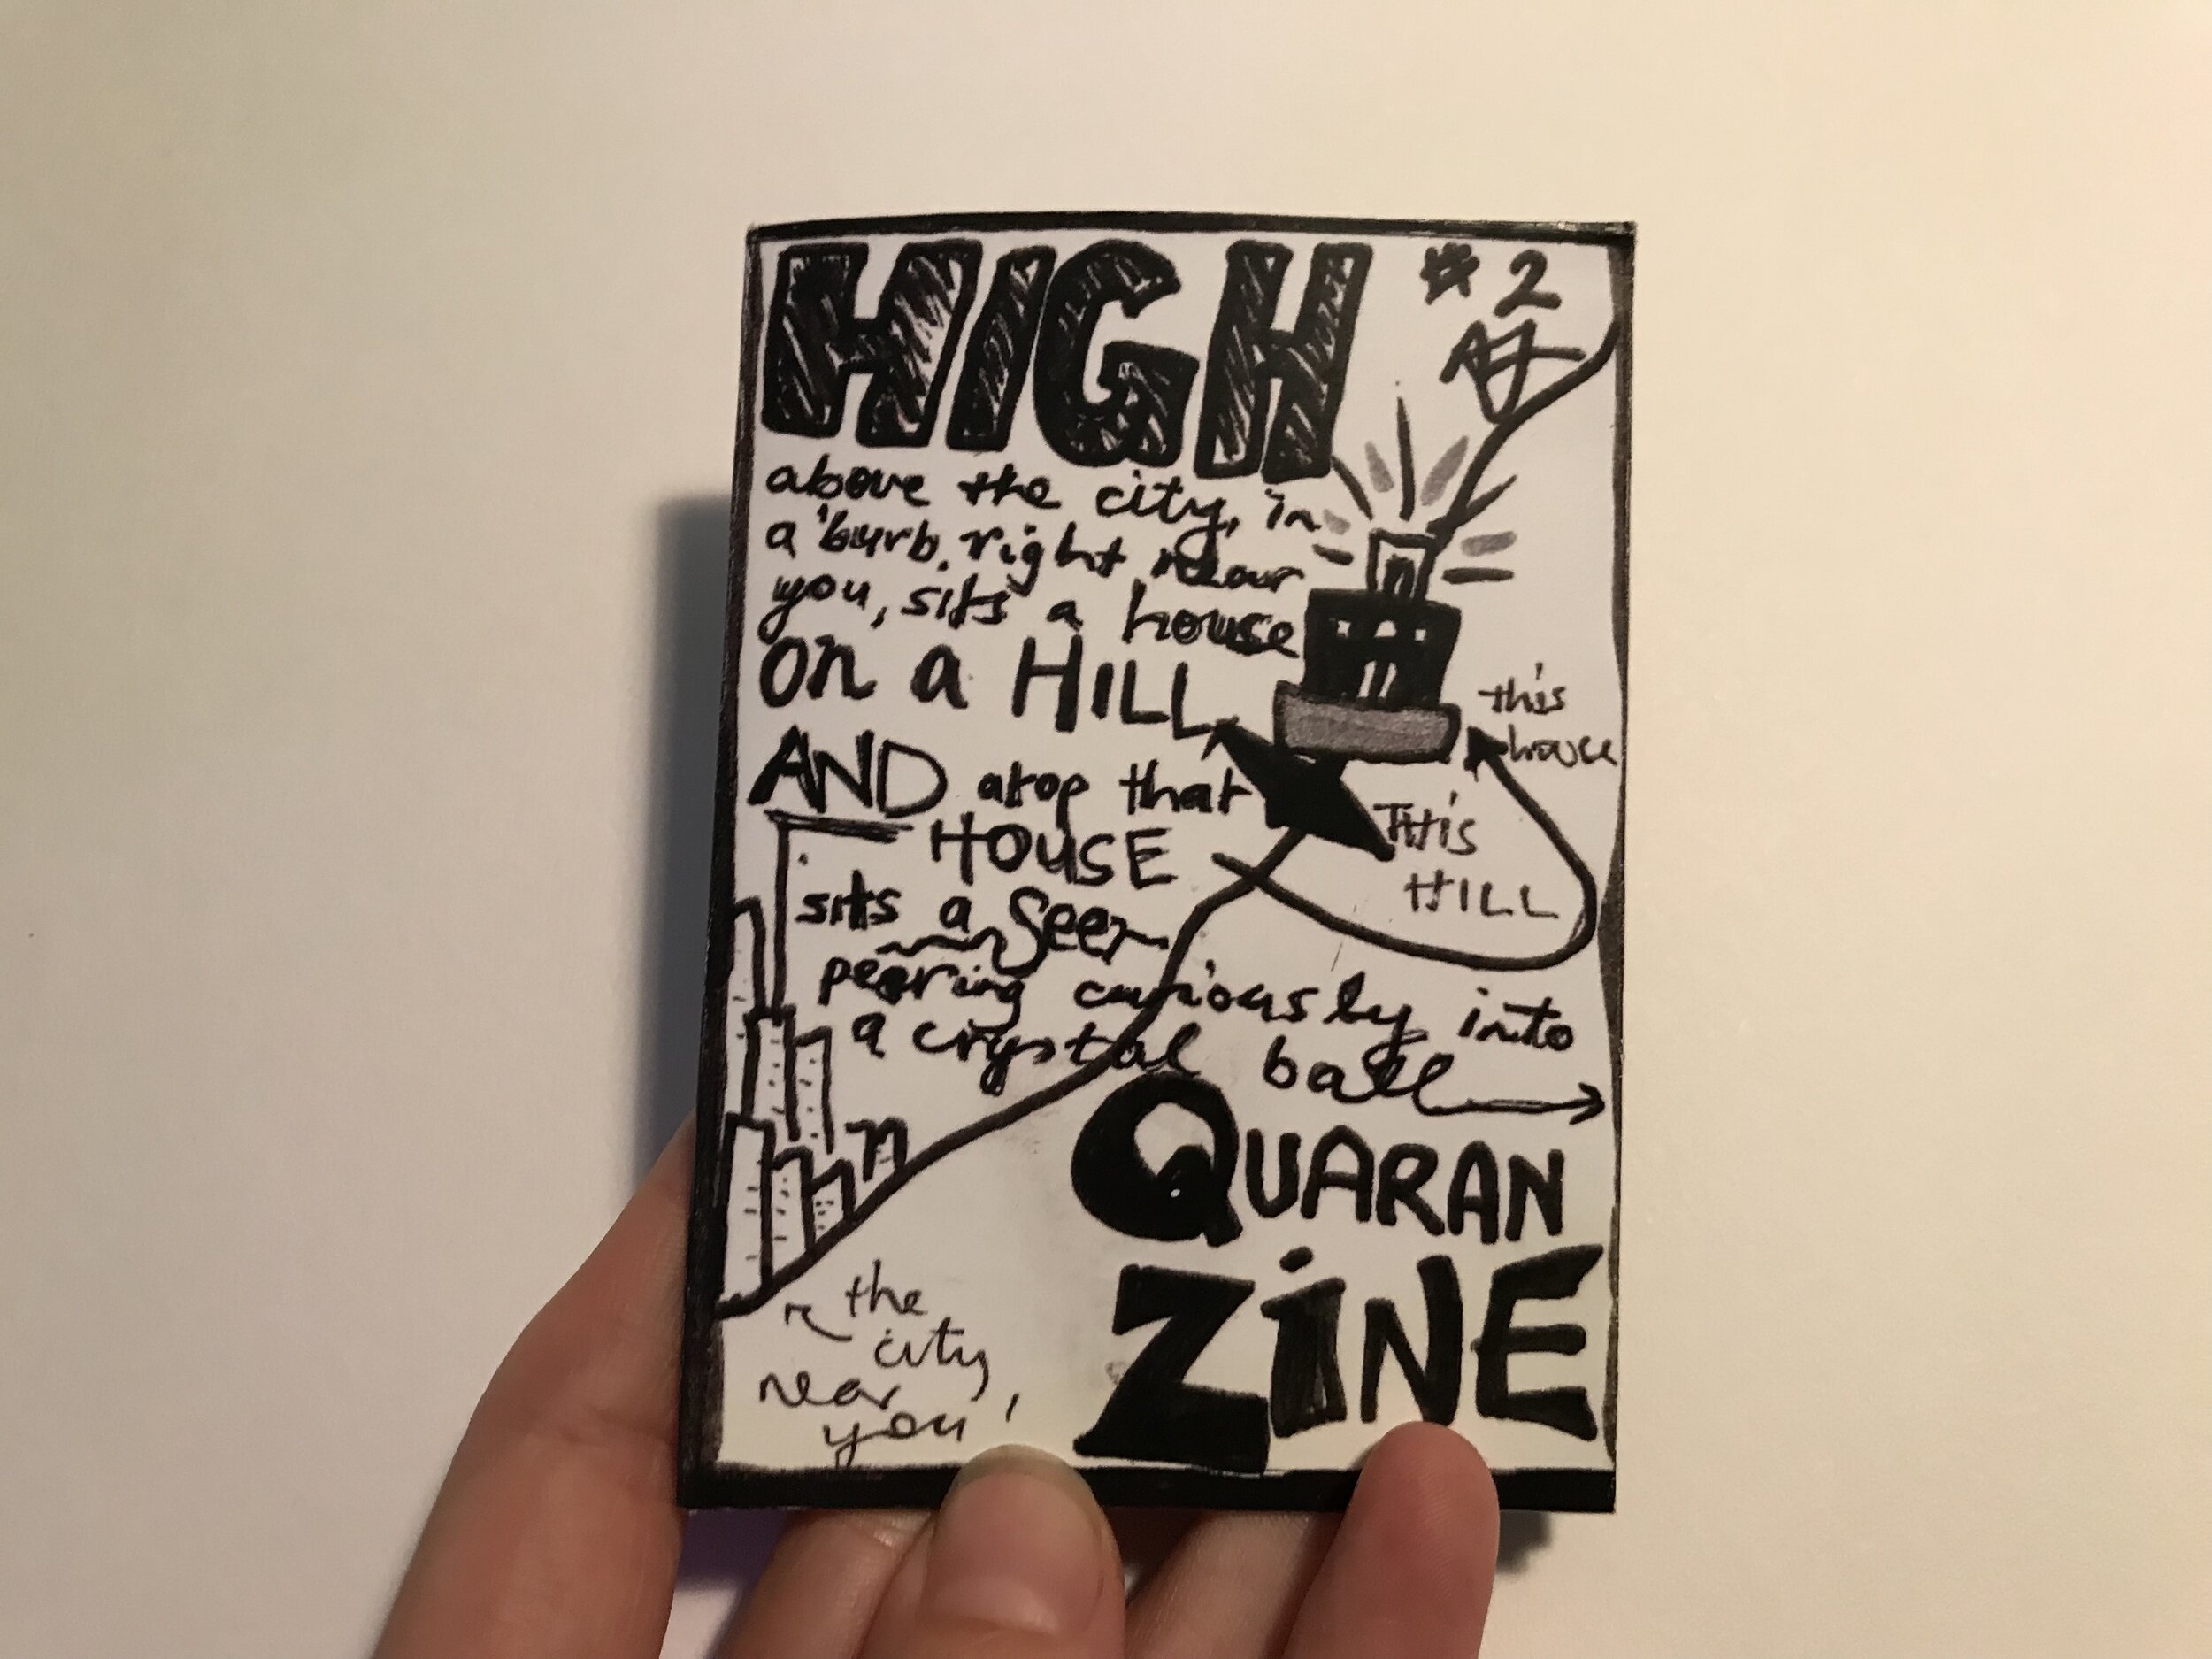 HIGH
#2
above the city, in
a 'burb, right near
you, sits a house
on a HILL
this
house
AND atop that
THIS
HOUSE
HILL
sits a seer
peering curiously into
a crystal ball
QUARAN
ZINE
the
city,
near
you